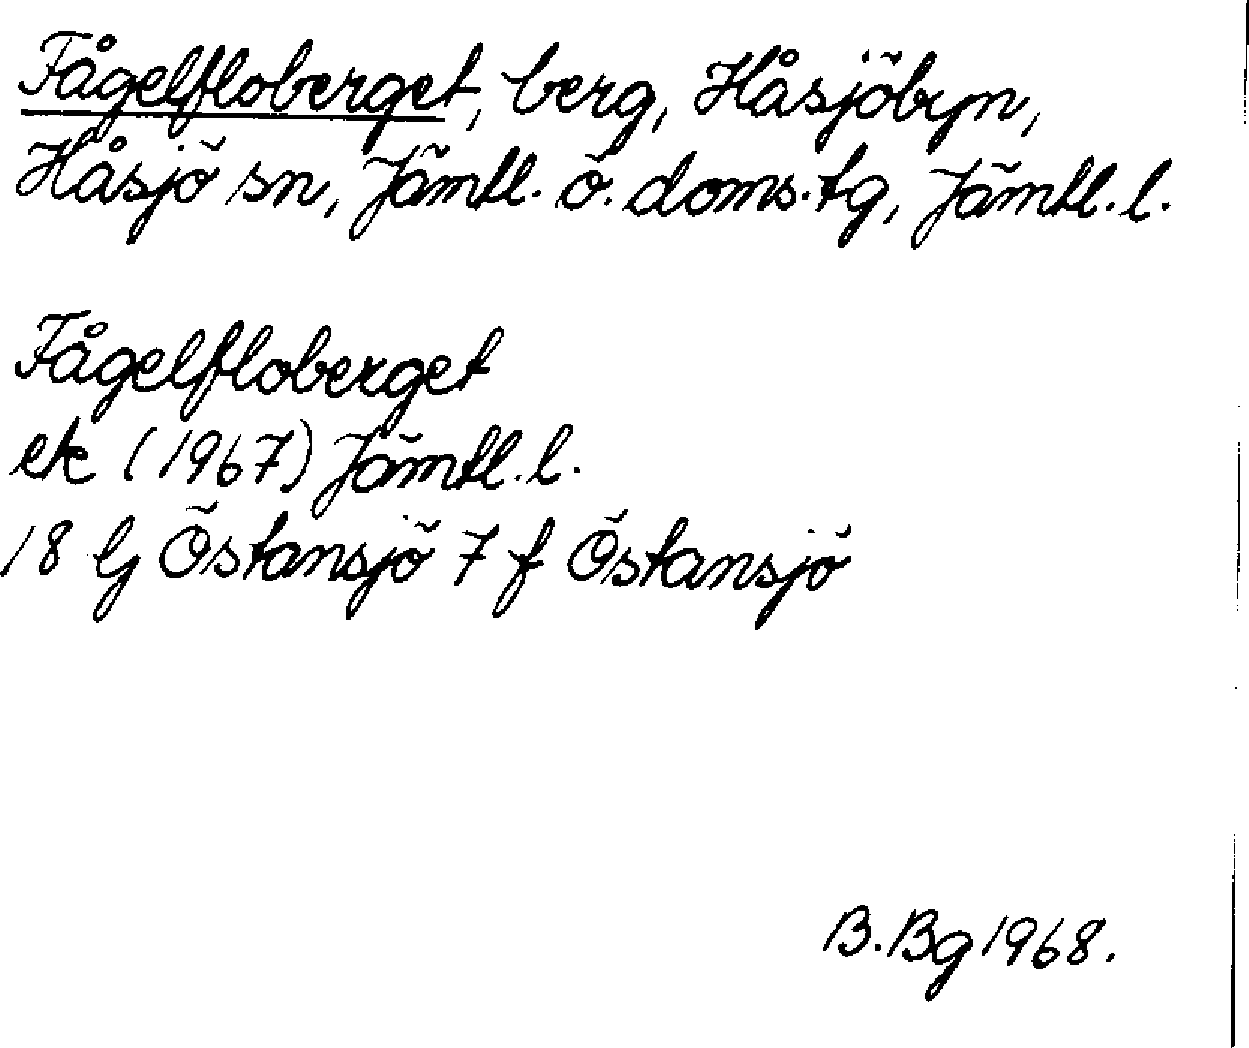 Fågelfloberget, berg, Håsjöbyn,
Håsjö sn, Jämtl. ö. doms.tg, Jämtl. l.
Fågelfloberget
ek (1967) Jämtl. l.
18 G Östansjö 7 f Östansjö
B. Bg 1968.